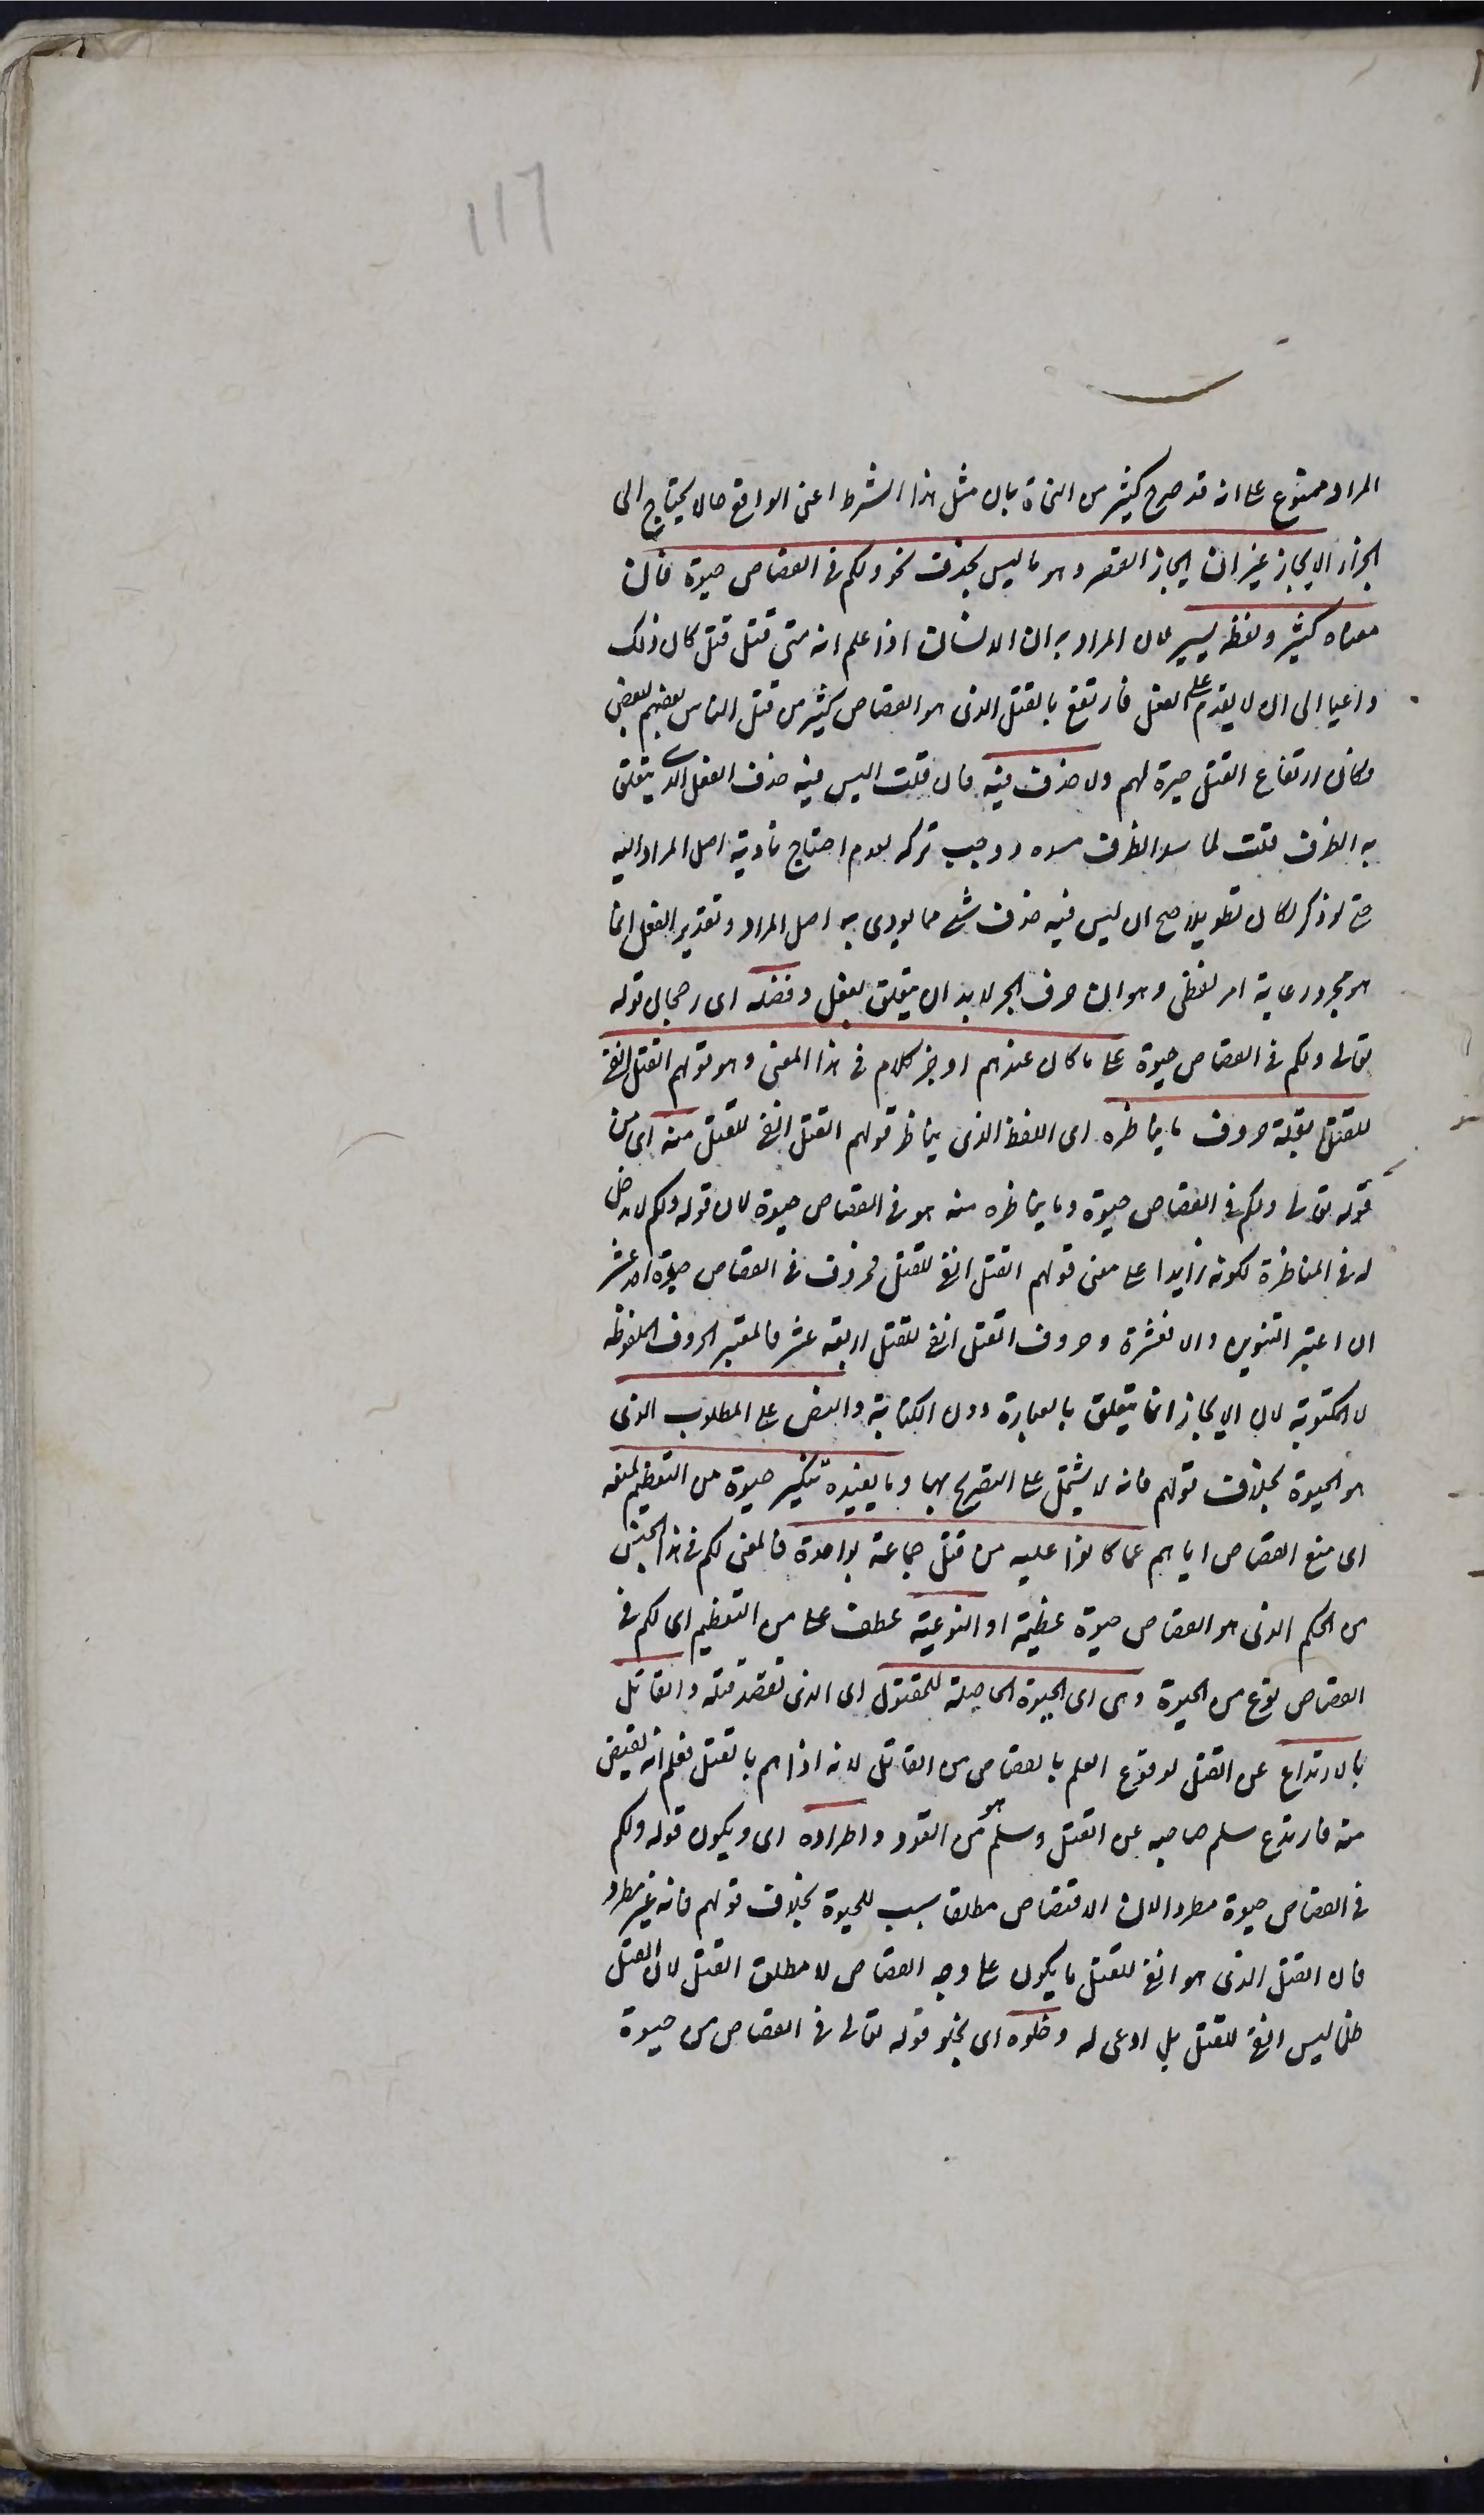 ١١٦
المراد ممنوع على انه قد صرح كثير من النحاة بان مثل هذا الشرط اعنى الواقع حالا لا يحتاج الى
الجزاء الايجاز غيزان ايجاز القصر وهو ما ليس بحذف نحو ولكم فى القصاص حيوة فان
معناه كثير ولفظه يسير لان المراد به ان الانسان اذا علم انه متى قتل قتل كان ذلك
داعيا الى ان لا يقدم على القتل فارتفع بالقتل الذى هو القصاص كثير من قتل الناس بعضهم لبعض
وكان ارتفاع القتل حيوة لهم ولا حذف فيه فان قلت اليس فيه حذف الفعل الذى يتعلق
به الظرف قلت لما سد الظرف مسده ووجب تركه لعدم احتياج تادية اصل المراد اليه
حتى لو ذكر لكان تطويلا صح ان ليس فيه حذف شئ مما يودى به اصل المراد وتقدير الفعل انما
هو مجرد رعاية امر لفظى وهو ان حرف الجر لابد ان يتعلق بفعل وفضله اى رجحان قوله
تعالى ولكم فى القصاص حيوة على ما كان عندهم اوجز كلام فى هذا المعنى وهو قولهم القتل انفى
للقتل بقلة حروف ما يناظره اى اللفظ الذى يناظر قولهم القتل انفى للقتل منه اى من
قوله تعالى ولكم فى القصاص حيوة وما يناظره منه هو فى القصاص حيوة لان قوله ولكم لا دخل
له فى المناظرة لكونه زايدا على معنى قولهم القتل انفى للقتل فحروف فى القصاص حيوة احد عشر
ان اعتبر التنوين والا فعشرة وحروف القتل انفى للقتل اربعة عشر فالمعتبر الحروف الملفوظة
لا المكتوبة لان الايجاز انما يتعلق بالعبارة دون الكتابة والنص على المطلوب الذى
هو الحيوة بخلاف قولهم فانه لا يشتمل على التصريح بها وما يفيده تنكير حيوة من التعظيم لمنعه
اى منع القصاص اياهم عما كانوا عليه من قتل جماعة بواحدة فالمعنى لكم فى هذا الجنس
من الحكم الذى هو القصاص حيوة عظيمة او النوعية عطف على من التعظيم اى لكم فى
القصاص نوع من الحيوة وهى اى الحيوة الحاصلة للمقتول اى الذى تقصد قتله والقاتل
بالارتداع عن القتل لوقوع العلم بالقصاص من القاتل لانه اذا هم بالقتل فعلم انه يقتص
منه فارتدع سلم صاحبه عن القتل وسلم هو من القود واطراده اى ويكون قوله ولكم
فى القصاص حيوة مطردا لان الاقتصاص مطلقا سبب للحيوة بخلاف قولهم فانه غير مطرد
فان القتل الذى هو انفى للقتل ما يكون على وجه القصاص لا مطلق القتل لان القتل
ظلما ليس انفى للقتل بل ادعى له وخلوه اى بخلو قوله تعالى فى القصاص من حيوة